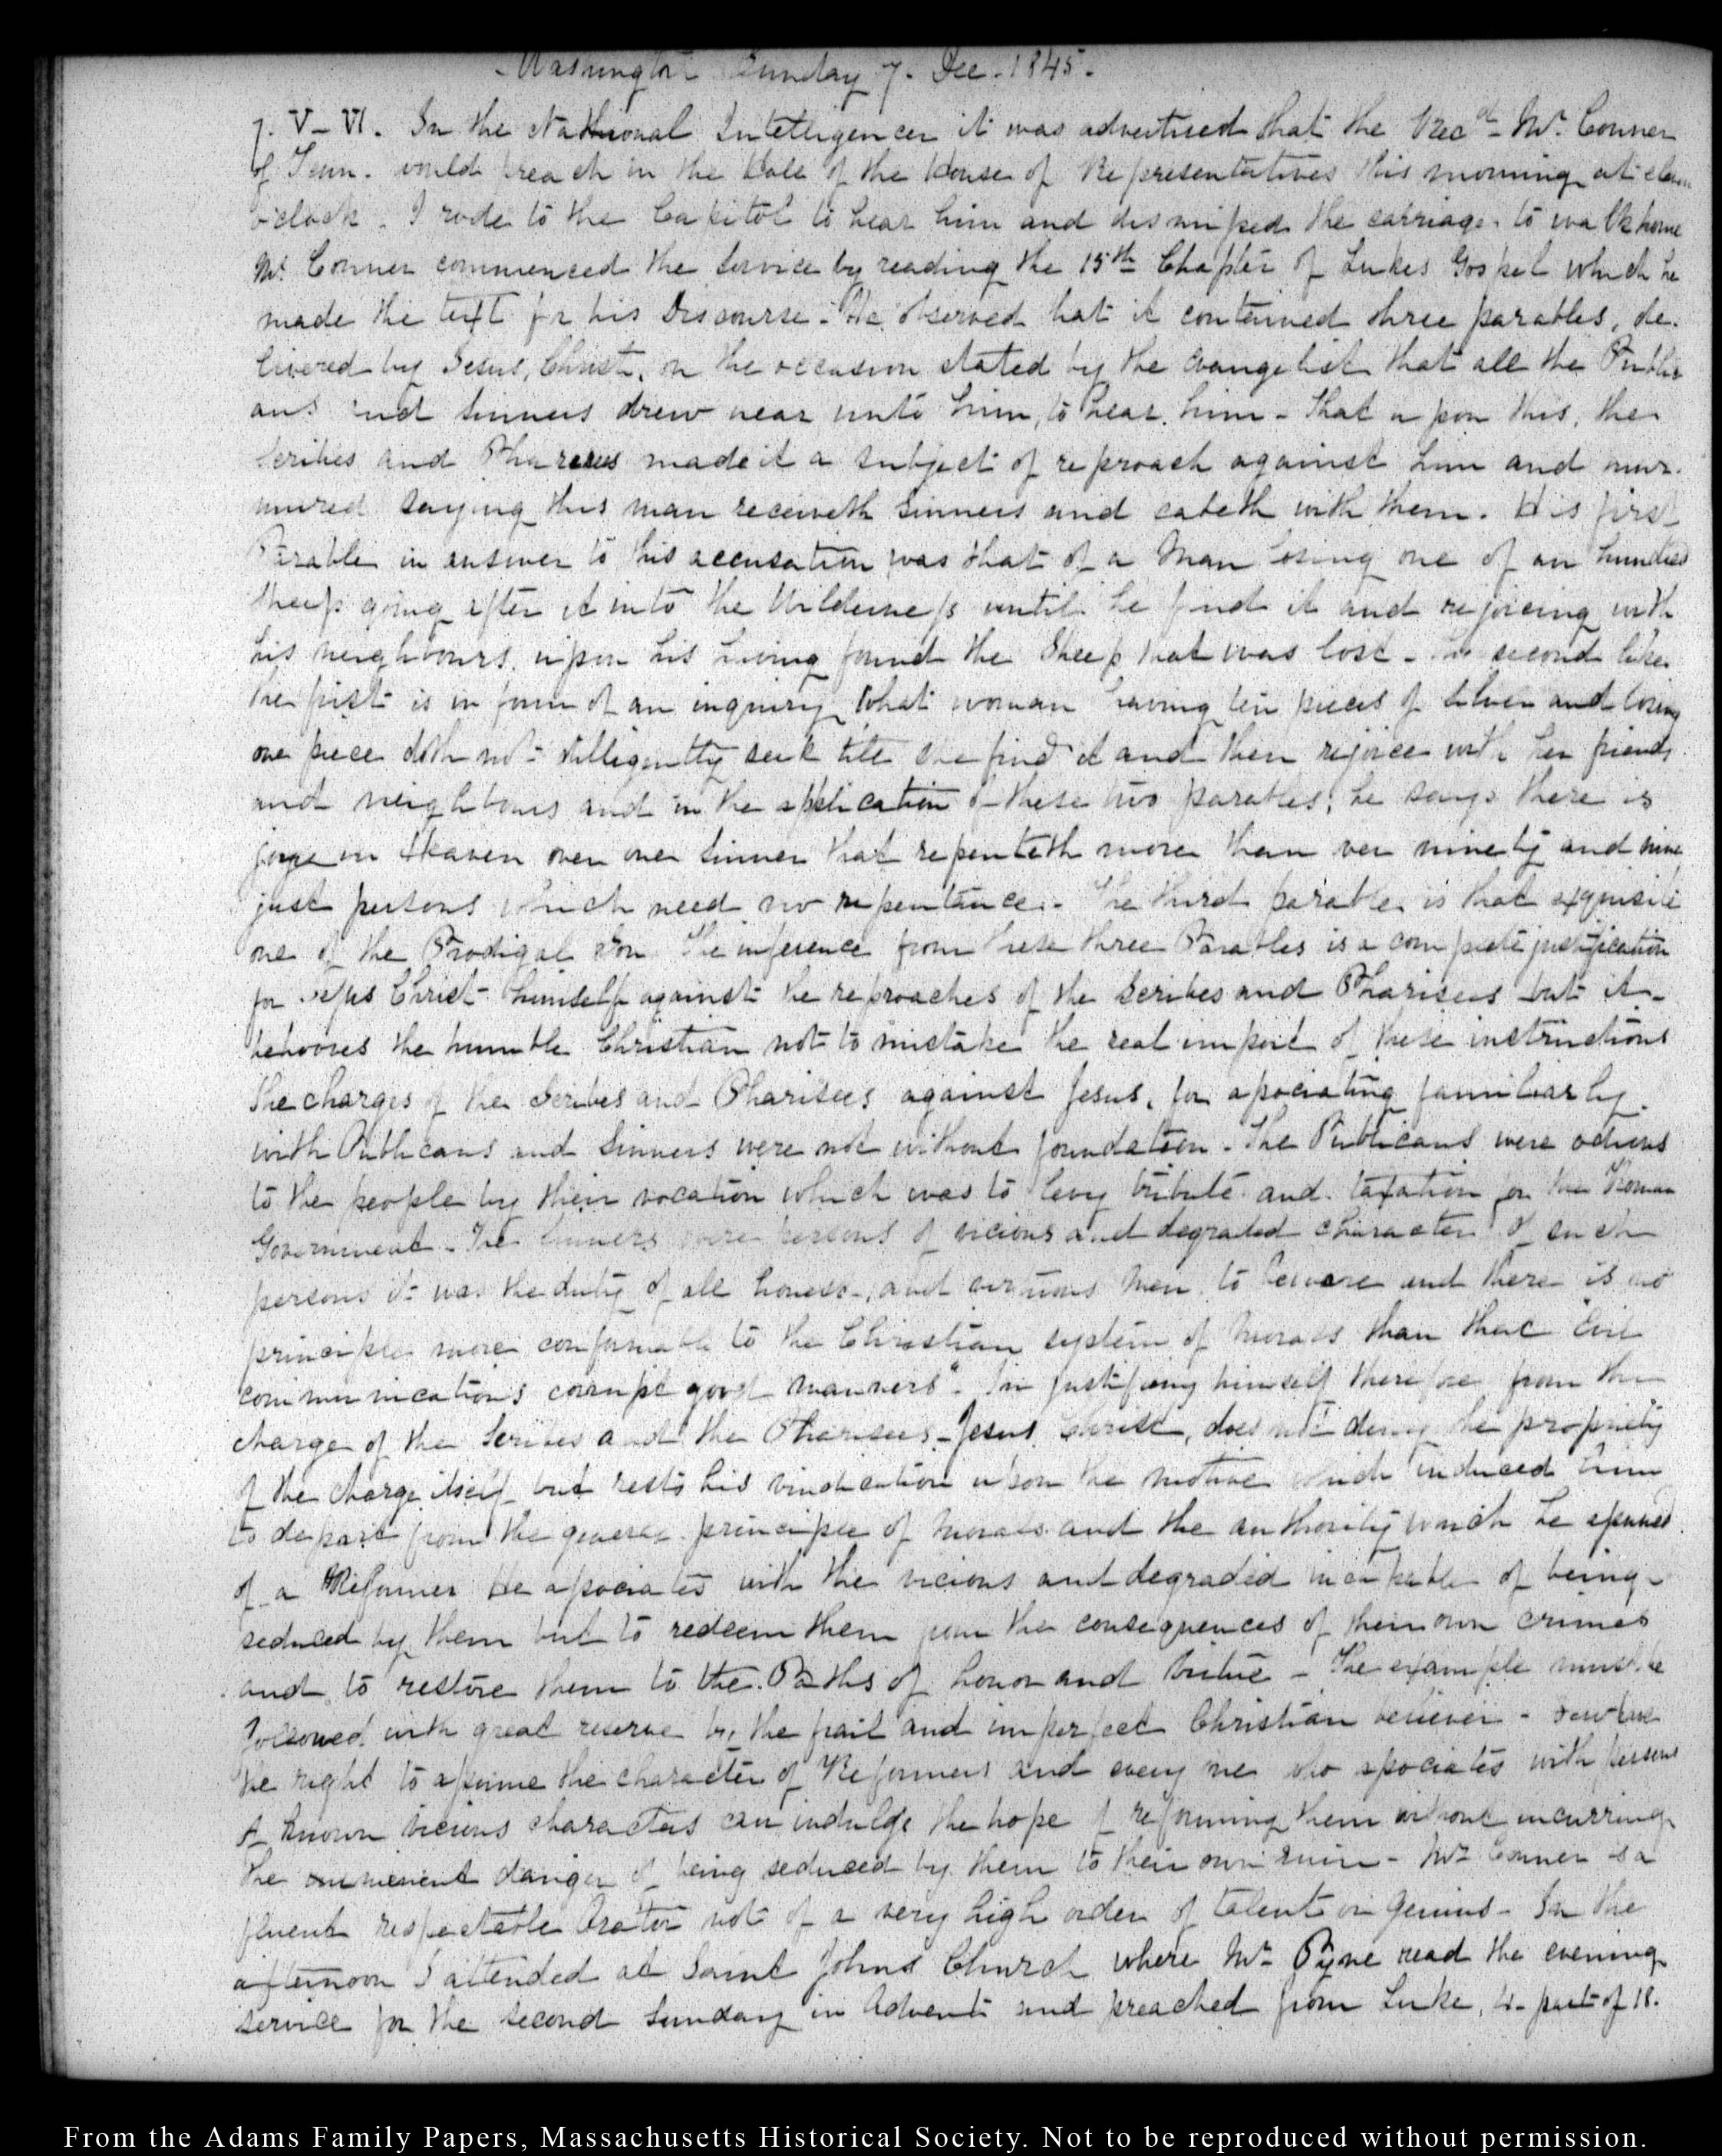 Washington Sunday 7. Dec. 1845.
7. V–VI. In the National Intelligencer it was advertised that the Revd. Mr. Conner
of Tenn. would preach in the Hall of the House of Representatives this morning at eleven
o'clock. I rode to the Capitol to hear him and dismissed the carriage, to walk home
Mr. Conner commenced the Service by reading the 15th Chapter of Lukes Gospel which he
made the text for his Discourse - He observed that it contained three parables, de-
livered by Jesus, Christ, on the occasion stated by the Evangelist that all the Public
ans and sinners drew near unto him, to hear him - that upon this, the
Scribes and Pharisees made it a subject of reproach against him and mur-
mured saying this man receiveth sinners and eateth with them. His first
Parable in answer to this accusation was that of a Man losing one of an hundred
sheep going after it into the Wilderness until he find it and rejoicing with
his neighbours, upon his having found the Sheep that was lost - The second like
the first is in form of an inquiry what woman having ten pieces of silver and losing
one piece doth not dilligently seek till she find it and then rejoice with her friends
and neighbours and in the application of these two parables, he says there is
joy in Heaven over one sinner that repenteth more than over ninety and nine
just persons which need no repentance. - The third parable is that exquisite
one of the Prodigal Son The inference from these three Parables is a complete justification
for Jesus Christ himself against the reproaches of the Scribes and Pharisees but it
behooves the humble Christian not to mistake the real import of these instructions
The charges of the Scribes and Pharisees against Jesus, for associating familiarly
with Publicans and Sinners were not without foundation - The Publicans were odious
to the people by their vocation which was to levy tribute and taxation for the Roman
Government - The Sinners were persons of vicious and degraded character of such
persons it was the duty of all honest, and virtuous Men to beware and there is no
principle more conformable to the Christian system of Morals than that "Evil
communications corrupt good manners". In justifying himself therefore from the
charge of the Scribes and the Pharisees - Jesus Christ, does not deny the propriety
of the charge itself but rests his vindication upon the motive which induced him
to depart from the general principle of Morals and the authority which he assumed
of a Reformer He associates with the vicious and degraded incapable of being
seduced by them but to redeem them from the consequences of their own crimes
and to restore them to the Paths of honor and Virtue - The example must be
followed with great reserve by the frail and imperfect Christian believer - few have
the right to assume the character of Reformers and every one who associates with persons
of known vicious characters can indulge the hope of reforming them without incurring
the imminent danger of being seduced by them to their own ruin - Mr. Conner is a
fluent respectable Orator not of a very high order of talent or genius - In the
afternoon I attended at Saint Johns Church where Mr. Pyne read the evening
service for the second Sunday in Advent and preached from Luke, 4. part of 18.
From the Adams Family Papers, Massachusetts Historical Society. Not to be reproduced without permission.